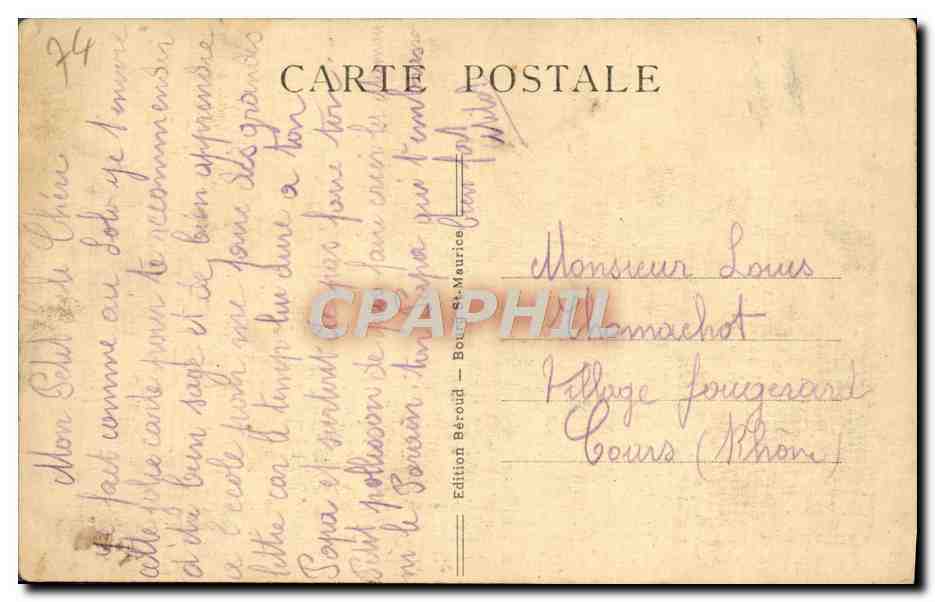 74
CARTE POSTALE
Mon Petit Chéri
fait comme au Loto je t'envoie
cette jolie carte pour te recommender
d'être bien sage et de bien apprendre
a l'école pour me faire des grandes
lettre car le temp lui dure a ton
Papa et surtout pas faire ton
Petit polisson de pas faire crier la
ni le Parain ton Papa qui t'embrasse
bien fort
Edition Béroud — Bourg-St-Maurice
CPAPHIL
Monsieur Louis
Thomachot
Village fougerard
Cours (Rhône)